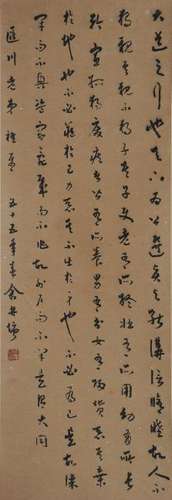 大道之行也天下為公選賢與能講信修睦故人不
獨親其親不獨子其子使老有所終壯有所用幼有所長
矜寡孤獨廢疾者皆有所養男有分女有歸貨惡其棄
於地也不必藏於己力惡其不出於身也不必為己是故謀
閉而不興盜竊亂賊而不作故外戶而不閉是謂大同
匯川老弟 五十五年春余井塘